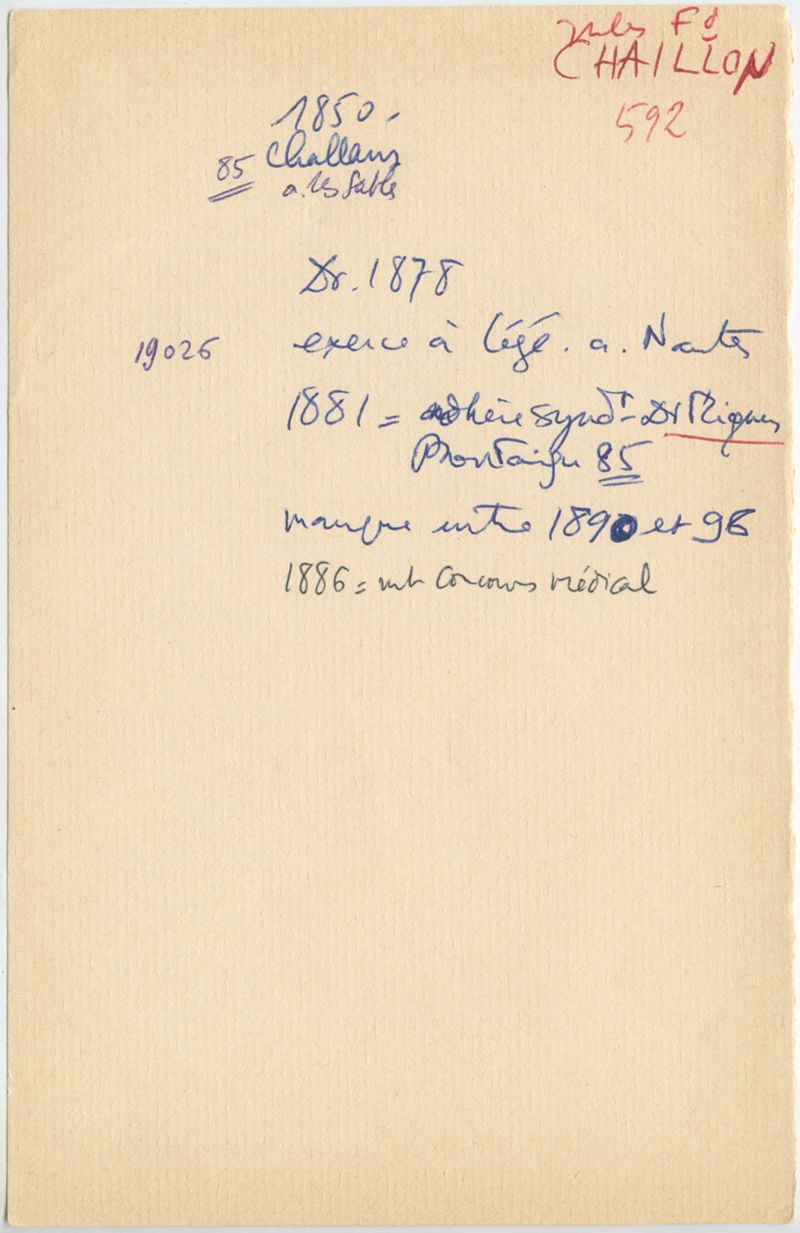 Jules Fd
CHAILLON
592
1850-
85 Challans
a. les Sables
Dr. 1878
19026 exerce à Légé. a. Nantes
1881 = adhère Syndt Dr Mignen
Montaigu 85
manque entre 1890 et 96
1886 = mb Concours médical